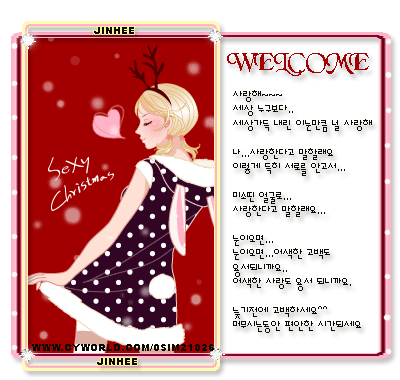 JINHEE
WELCOME
사랑해~~~
세상 누구보다..
세상가득 내린 이눈만큼 널 사랑해
나...사랑한다고 말할래요
이렇게 특히 서로를 안고서...
미소띤 얼굴로...
사랑한다고 말할래요...
눈이오면...
눈이오면...어색한 고백도
용서되니까요..
어색한 사랑도 용서 되니까요.
늦기전에 고백하세요^^
머무시는동안 편안한 시간되세요
Sexy
Christmas
WWW.CYWORLD.COM/OSIM21026
JINHEE